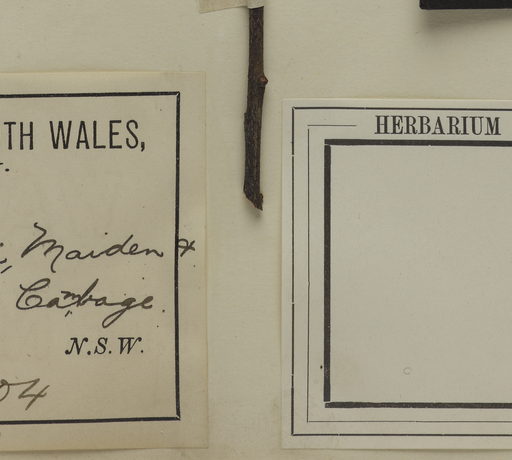 TH WALES,
Maiden &
Cambage.
N.S.W.
04
HERBARIUM